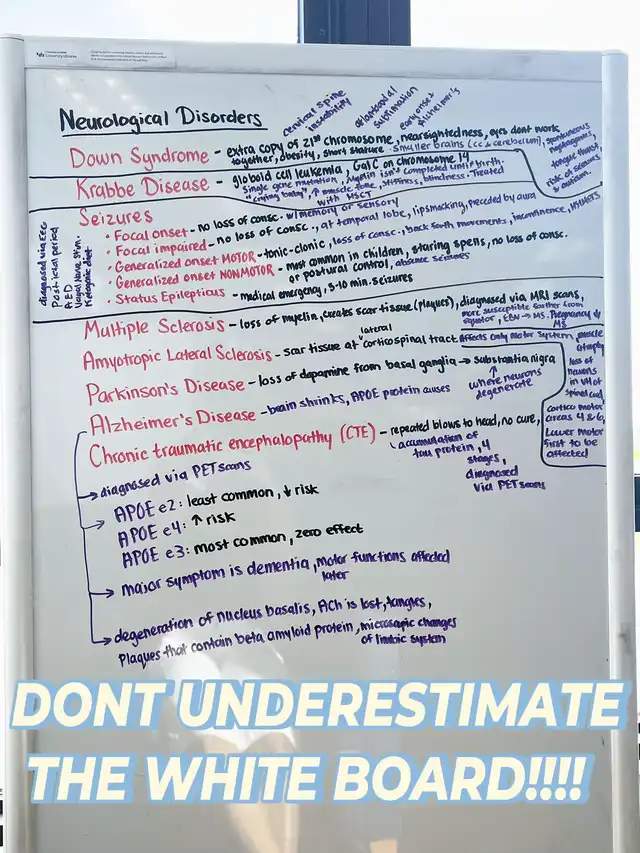 University Libraries
Neurological Disorders
cervical spine instability
atlantoaxial sublimation
early onset alzheimer's
Down Syndrome - extra copy of 21st chromosome, nearsightedness, eyes dont work
together, obesity, short stature smaller brains (cc & cerebellum), spontaneous
tongue thrust,
risk of seizures
& autism.
Krabbe Disease - globoid cell leukemia, GalC on chromosome 14
single gene mutation, Myelin isn't completed until birth.
"crying baby", ↑ muscle tone, stiffness, blindness. Treated
with HSCT
Seizures
diagnosed via EEG
Post ictal period
AED
Vagal Nerve Stim.
Ketogenic diet
• Focal onset - no loss of consc. w/memory or sensory
• Focal impaired - no loss of consc., at temporal lobe, lipsmacking, preceded by aura
• Generalized onset MOTOR - tonic-clonic, loss of consc., back & forth movements, incontinence,
• Generalized onset NONMOTOR - most common in children, staring spells, no loss of consc.
or postural control, absence seizures
• Status Epilepticus - medical emergency, 5-10 min. seizures
Multiple Sclerosis - loss of myelin, creates scar tissue (plaques), diagnosed via MRI scans,
more susceptible farther from
equator, EBV → MS. Pregnancy ↓
MS
Amyotropic Lateral Sclerosis - scar tissue at lateral corticospinal tract
Affects only motor system, muscle
atrophy
loss of
neurons
in VH of
spinal cord,
cortico motor
areas 4 & 6,
Lower motor
first to be
affected
Parkinson's Disease - loss of dopamine from basal ganglia → substantia nigra
↑
where neurons
degenerate
Alzheimer's Disease - brain shrinks, APOE protein causes
Chronic traumatic encephalopathy (CTE) - repeated blows to head, no cure,
accumulation of
tau protein, 4
stages,
diagnosed
via PET scans
→ diagnosed via PET scans
→ APOE e2: least common, ↓ risk
APOE e4: ↑ risk
APOE e3: most common, zero effect
→ major symptom is dementia, motor functions affected
later
→ degeneration of nucleus basalis, ACh is lost, tangles,
Plaques that contain beta amyloid protein, microsopic changes
of limbic system
DONT UNDERESTIMATE
THE WHITE BOARD!!!!